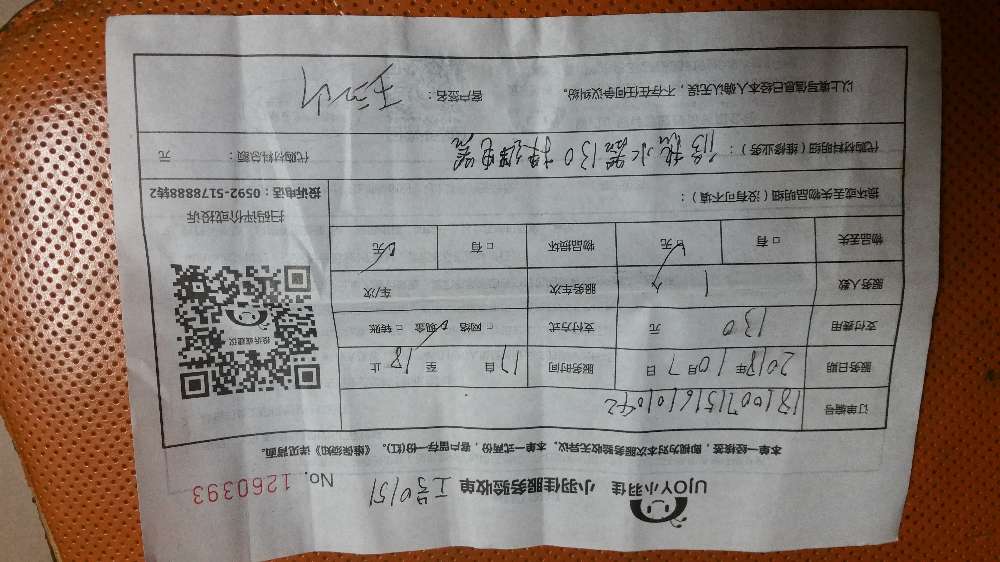 UJOY小羽佳 小羽佳服务验收单 工号0151 No. 1260393
本单一经核签，即视为对本次服务验收无异议。本单一式两份，客户留存一份(红)。《维保须知》详见背面。
订单编号 18100715161010942
服务日期 2018年10月7日 服务时间 17自 至18止
支付费用 130 元 支付方式 □网络 ☑现金 □转账
服务人数 1 人 服务车次 车/次
物品丢失 □有 ☑无 物品损坏 □有 ☑无
投诉或建议
扫码评价或投诉
投诉电话：0592-5178888转2
损坏或丢失物品明细（没有可不填）：
代购材料明细（维修业务）： 热水器130 电器
代购材料总额： 元
以上填写信息已经本人确认无误，不存在任何争议纠纷。 客户签名：